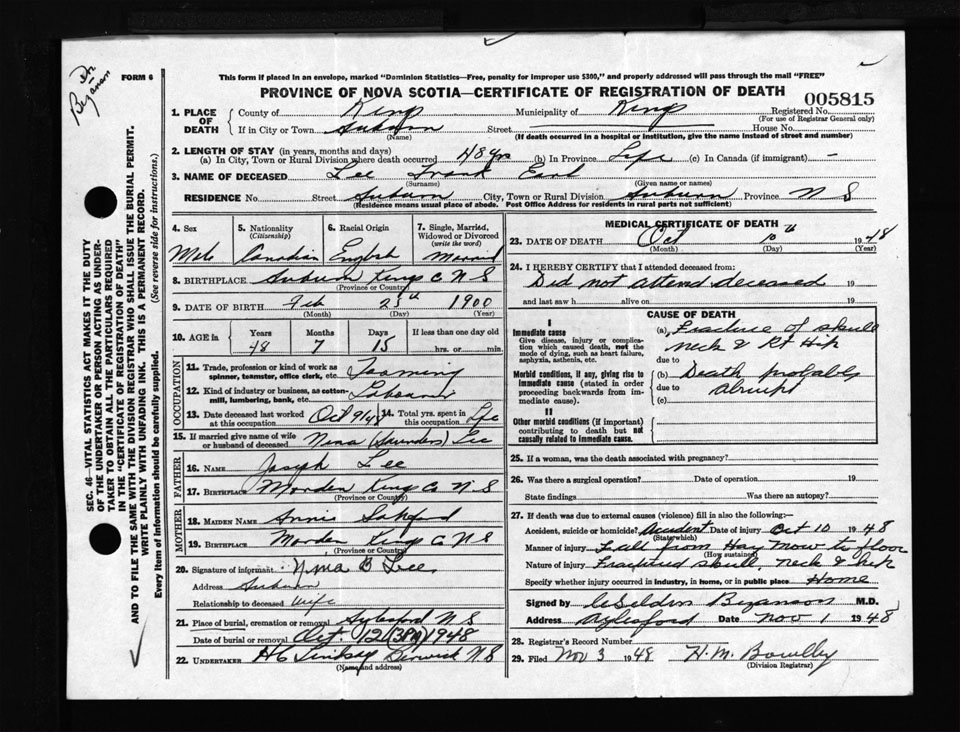 Dr
Bezanson
FORM 6
This form if placed in an envelope, marked "Dominion Statistics—Free, penalty for improper use $300," and properly addressed will pass through the mail "FREE"
PROVINCE OF NOVA SCOTIA—CERTIFICATE OF REGISTRATION OF DEATH
005815
1. PLACE OF DEATH County of Kings Municipality of Kings Registered No.
(For use of Registrar General only)
If in City or Town Auburn Street House No.
(Name) (If death occurred in a hospital or institution, give the name instead of street and number)
2. LENGTH OF STAY (in years, months and days)
(a) In City, Town or Rural Division where death occurred 48 yrs (b) In Province Life (c) In Canada (if immigrant) —
3. NAME OF DECEASED Lee Frank Earl
(Surname) (Given name or names)
RESIDENCE No. Street Auburn City, Town or Rural Division Auburn Province N S
(Residence means usual place of abode. Post Office Address for residents in rural parts not sufficient)
4. Sex 5. Nationality (Citizenship) 6. Racial Origin 7. Single, Married, Widowed or Divorced (write the word)
Male Canadian English Married
8. BIRTHPLACE Auburn Kings C N S
(Province or Country)
9. DATE OF BIRTH Feb 25th 1900
(Month) (Day) (Year)
10. AGE in Years Months Days If less than one day old
48 7 15 hrs. or min.
OCCUPATION
11. Trade, profession or kind of work as spinner, teamster, office clerk, etc. Farming
12. Kind of industry or business, as cotton-mill, lumbering, bank, etc. Laborer
13. Date deceased last worked at this occupation Oct 9/48 14. Total yrs. spent in this occupation Life
15. If married give name of wife or husband of deceased Nina (Saunders) Lee
FATHER
16. NAME Joseph Lee
17. BIRTHPLACE Morden Kings Co N S
(Province or Country)
MOTHER
18. MAIDEN NAME Annie
19. BIRTHPLACE Morden Kings C N S
(Province or Country)
20. Signature of informant Nina B Lee
Address Auburn
Relationship to deceased Wife
21. Place of burial, cremation or removal Aylesford N S
Date of burial or removal Oct. 12 (3PM) 1948
22. UNDERTAKER H C Lindsay Berwick N S
(Name and address)
MEDICAL CERTIFICATE OF DEATH
23. DATE OF DEATH Oct 10th 1948
(Month) (Day) (Year)
24. I HEREBY CERTIFY that I attended deceased from:
Did not attend deceased 19
and last saw h alive on 19
CAUSE OF DEATH
I
Immediate cause
Give disease, injury or complication which caused death, not the mode of dying, such as heart failure, asphyxia, asthenia, etc.
(a) Fracture of skull
neck & Rt Hip
due to
Morbid conditions, if any, giving rise to immediate cause (stated in order proceeding backwards from immediate cause).
(b) Death probably
due to abrupt
(c)
II
Other morbid conditions (if important) contributing to death but not causally related to immediate cause.
25. If a woman, was the death associated with pregnancy?
26. Was there a surgical operation? Date of operation 19
State findings Was there an autopsy?
27. If death was due to external causes (violence) fill in also the following:
Accident, suicide or homicide? Accident Date of injury Oct 10 1948
(State which)
Manner of injury Fall from Hay Mow to floor
(How sustained)
Nature of injury Fractured skull, neck & hip
Specify whether injury occurred in industry, in home, or in public place Home
Signed by Bezanson M.D.
Address Aylesford Date Nov 1 1948
28. Registrar's Record Number
29. Filed Nov 3 1948 H. M. Bowlby
(Division Registrar)
SEC. 46—VITAL STATISTICS ACT MAKES IT THE DUTY
OF THE UNDERTAKER OR PERSON ACTING AS UNDER-
TAKER TO OBTAIN ALL THE PARTICULARS REQUIRED
IN THE "CERTIFICATE OF REGISTRATION OF DEATH"
AND TO FILE THE SAME WITH THE DIVISION REGISTRAR WHO SHALL ISSUE THE BURIAL PERMIT.
WRITE PLAINLY WITH UNFADING INK. THIS IS A PERMANENT RECORD.
Every item of information should be carefully supplied. (See reverse side for instructions.)